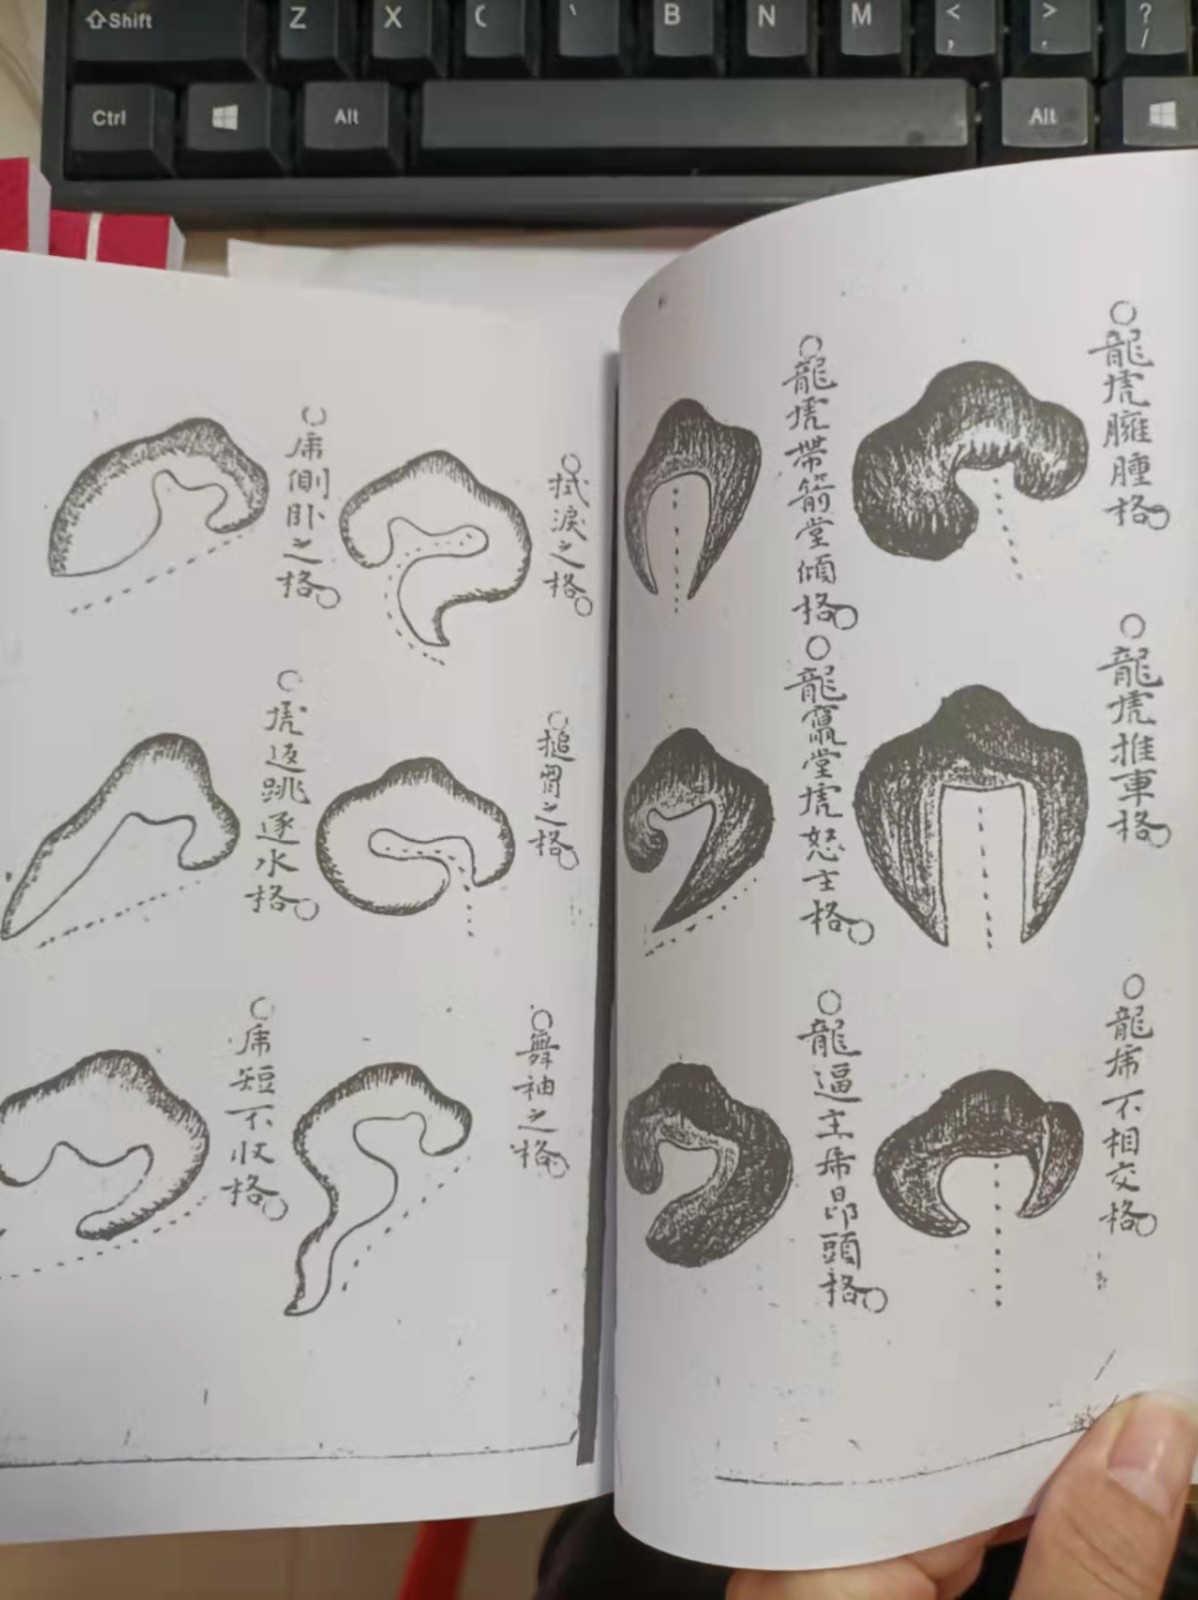 Shift
Z
X
C
B
N
M
<
,
>
.
?
/
Ctrl
Alt
Alt
龍虎臃腫格
龍虎推車格
龍虎不相交格
龍虎帶箭堂傾格
龍窩堂虎怒主格
龍逼主虎昂頭格
拭淚之格
搥胷之格
舞袖之格
虎側卧之格
虎返跳逐水格
虎短不收格